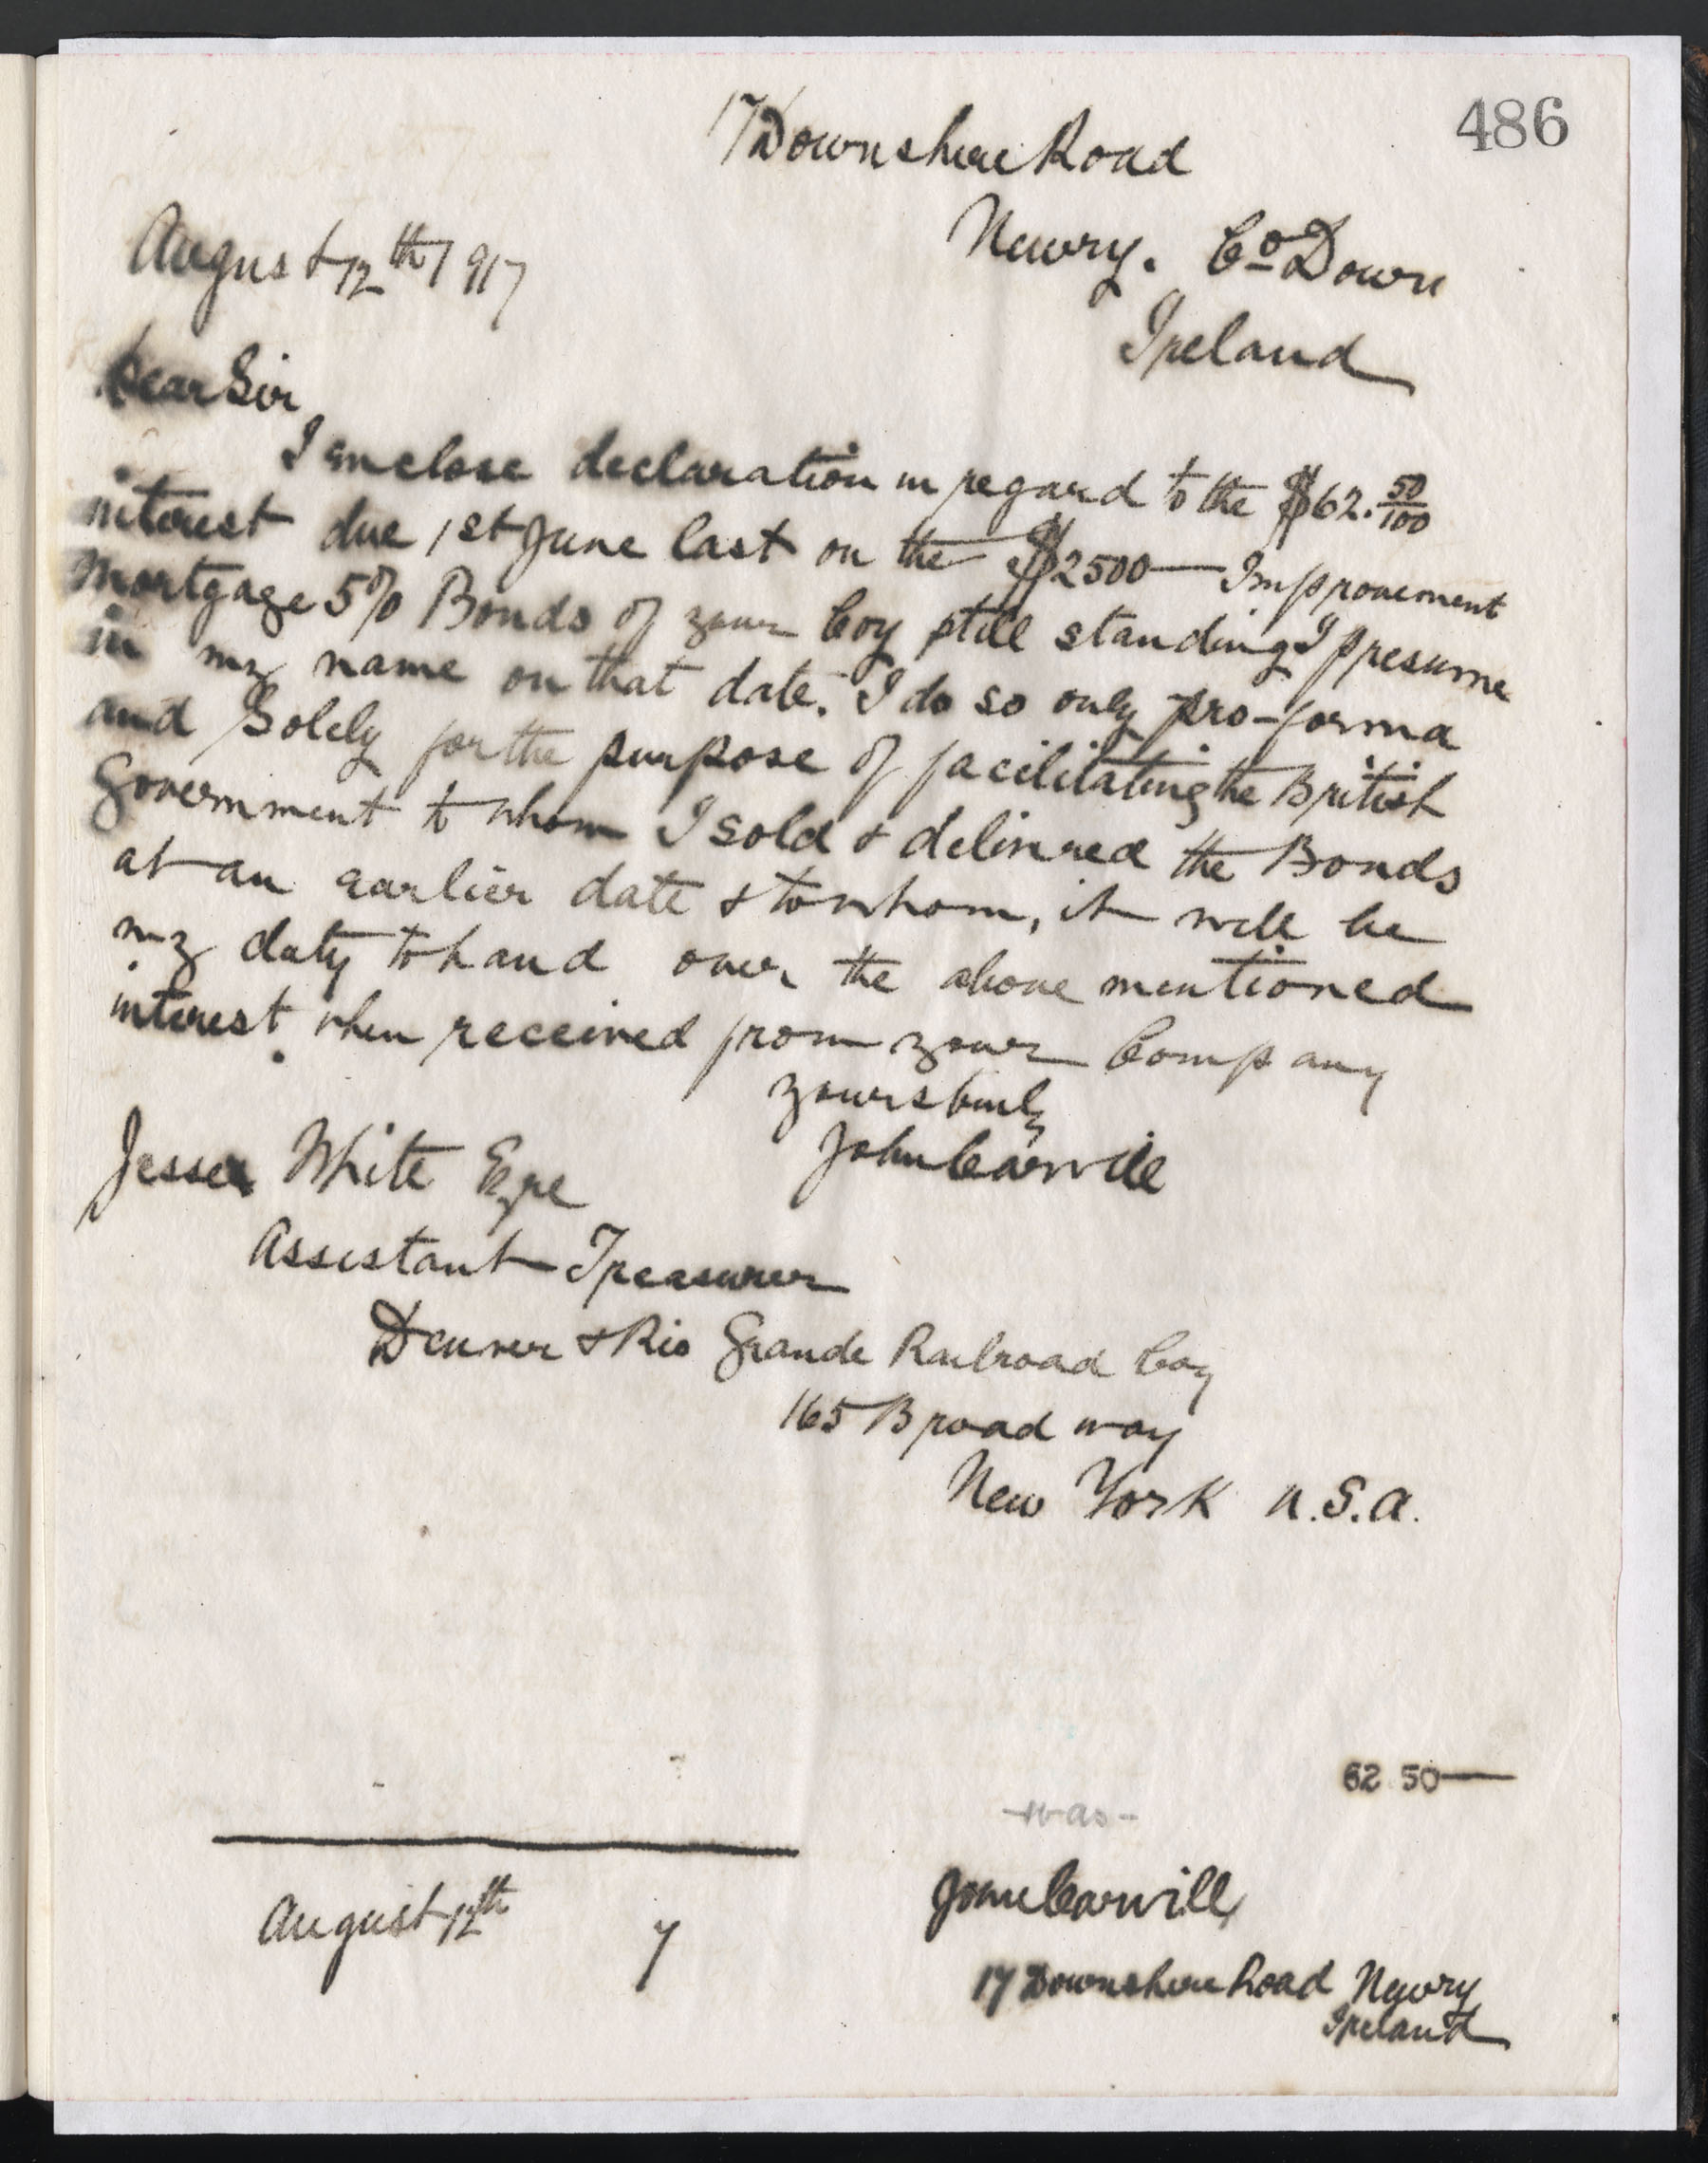 486
17 Downshire Road
Newry. Co Down
Ireland
August 12th 1917
Dear Sir
I enclose declaration in regard to the $62.50/100
interest due 1st June last on the $2500— Improvement
Mortgage 5% Bonds of your Coy still standing I presume
in my name on that date. I do so only pro-forma
and Solely for the purpose of facilitating the British
Government to whom I sold & delivered the Bonds
at an earlier date & to whom, it will be
my duty to hand over the above mentioned
interest when received from your Company
Yours truly
John Carvill
Jesse White Esqre
Assistant Treasurer
Denver & Rio Grande Railroad Coy
165 Broadway
New York U.S.A.
62 50—
-was-
August 12th 7
John Carvill
17 Downshire Road Newry
Ireland